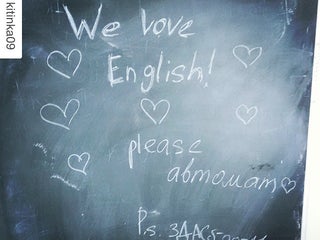 kitinka09
We love
English!
please
автомат
P.s.